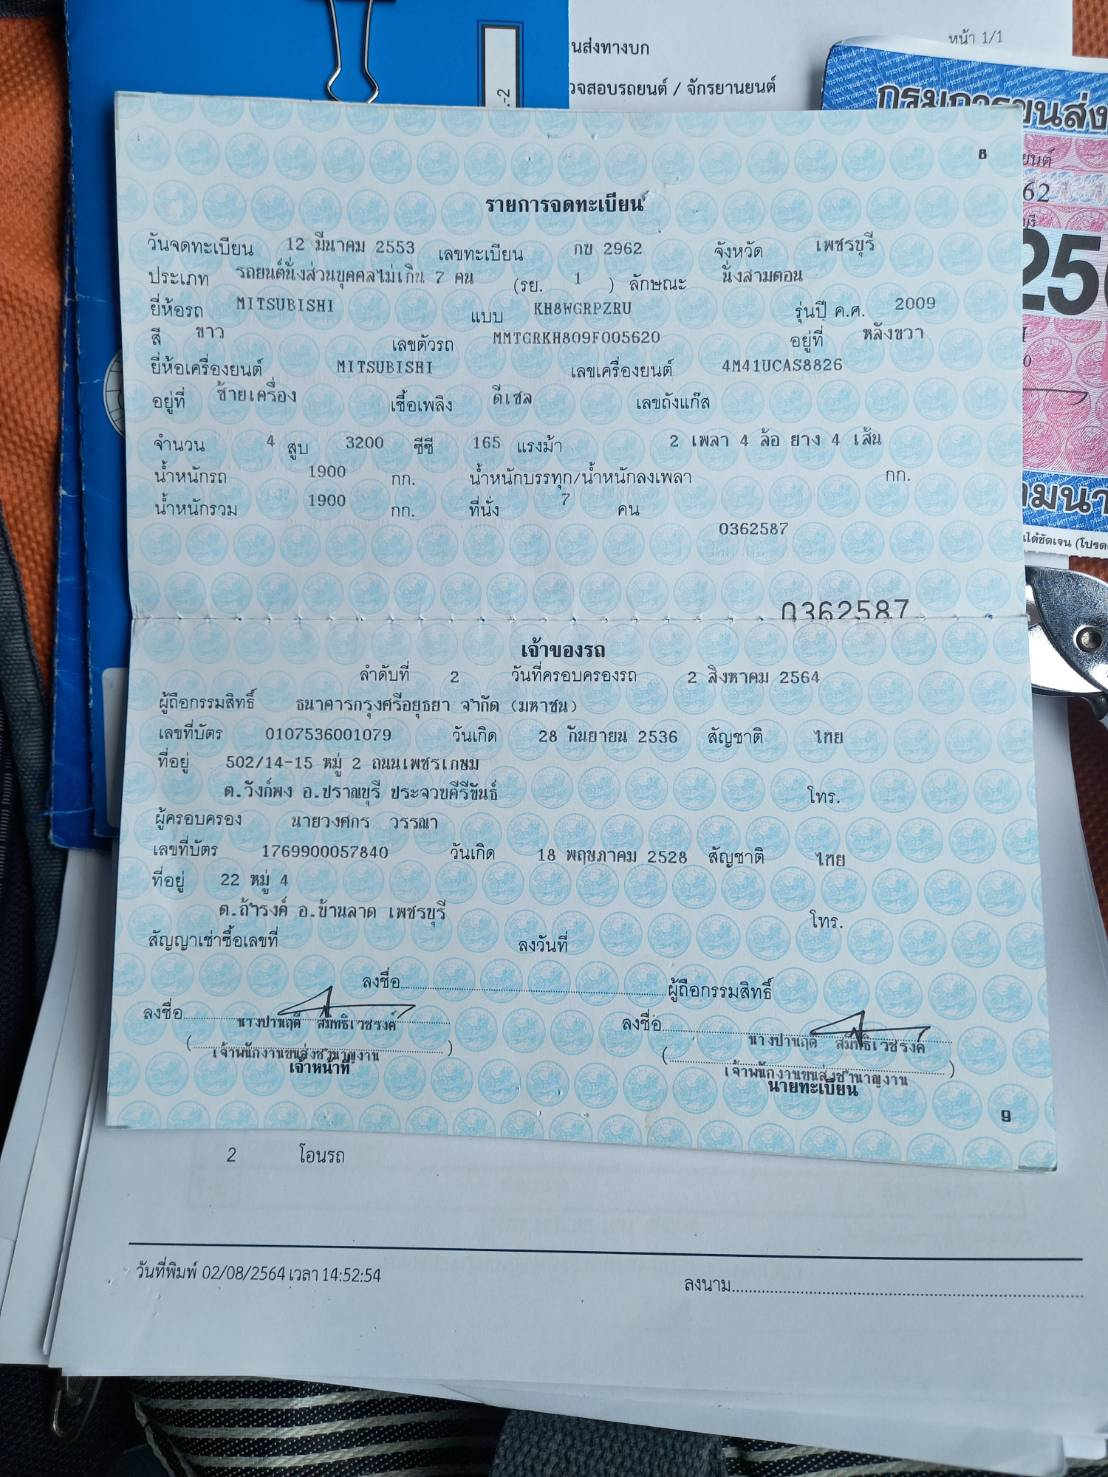 นส่งทางบก
หน้า 1/1
วจสอบรถยนต์ / จักรยานยนต์
-2
กรมการขนส่ง
ยนต์
62
25
8
รายการจดทะเบียน
วันจดทะเบียน 12 มีนาคม 2553 เลขทะเบียน กข 2962 จังหวัด เพชรบุรี
ประเภท รถยนต์นั่งส่วนบุคคลไม่เกิน 7 คน (รย. 1 ) ลักษณะ นั่งสามตอน
ยี่ห้อรถ MITSUBISHI แบบ KH8WGRPZRU รุ่นปี ค.ศ. 2009
สี ขาว เลขตัวรถ MMTGRKH809F005620 อยู่ที่ หลังขวา
ยี่ห้อเครื่องยนต์ MITSUBISHI เลขเครื่องยนต์ 4M41UCAS8826
อยู่ที่ ซ้ายเครื่อง เชื้อเพลิง ดีเซล เลขถังแก๊ส
จำนวน 4 สูบ 3200 ซีซี 165 แรงม้า 2 เพลา 4 ล้อ ยาง 4 เส้น
น้ำหนักรถ 1900 กก. น้ำหนักบรรทุก/น้ำหนักลงเพลา กก.
น้ำหนักรวม 1900 กก. ที่นั่ง 7 คน
0362587
0362587
เจ้าของรถ
ลำดับที่ 2 วันที่ครอบครองรถ 2 สิงหาคม 2564
ผู้ถือกรรมสิทธิ์ ธนาคารกรุงศรีอยุธยา จำกัด (มหาชน)
เลขที่บัตร 0107536001079 วันเกิด 28 กันยายน 2536 สัญชาติ ไทย
ที่อยู่ 502/14-15 หมู่ 2 ถนนเพชรเกษม
ต.วังก์พง อ.ปราณบุรี ประจวบคีรีขันธ์ โทร.
ผู้ครอบครอง นายวงศกร วรรณา
เลขที่บัตร 1769900057840 วันเกิด 18 พฤษภาคม 2528 สัญชาติ ไทย
ที่อยู่ 22 หมู่ 4
ต.ถ้ำรงค์ อ.บ้านลาด เพชรบุรี โทร.
สัญญาเช่าซื้อเลขที่ ลงวันที่
ลงชื่อ ผู้ถือกรรมสิทธิ์
ลงชื่อ ลงชื่อ
นางปานฤดี สัมฤทธิเวชรงค์ นางปานฤดี สัมฤทธิเวชรงค์
( เจ้าพนักงานขนส่งชำนาญงาน ) ( เจ้าพนักงานขนส่งชำนาญงาน )
เจ้าหน้าที่ นายทะเบียน
9
2 โอนรถ
วันที่พิมพ์ 02/08/2564 เวลา 14:52:54 ลงนาม